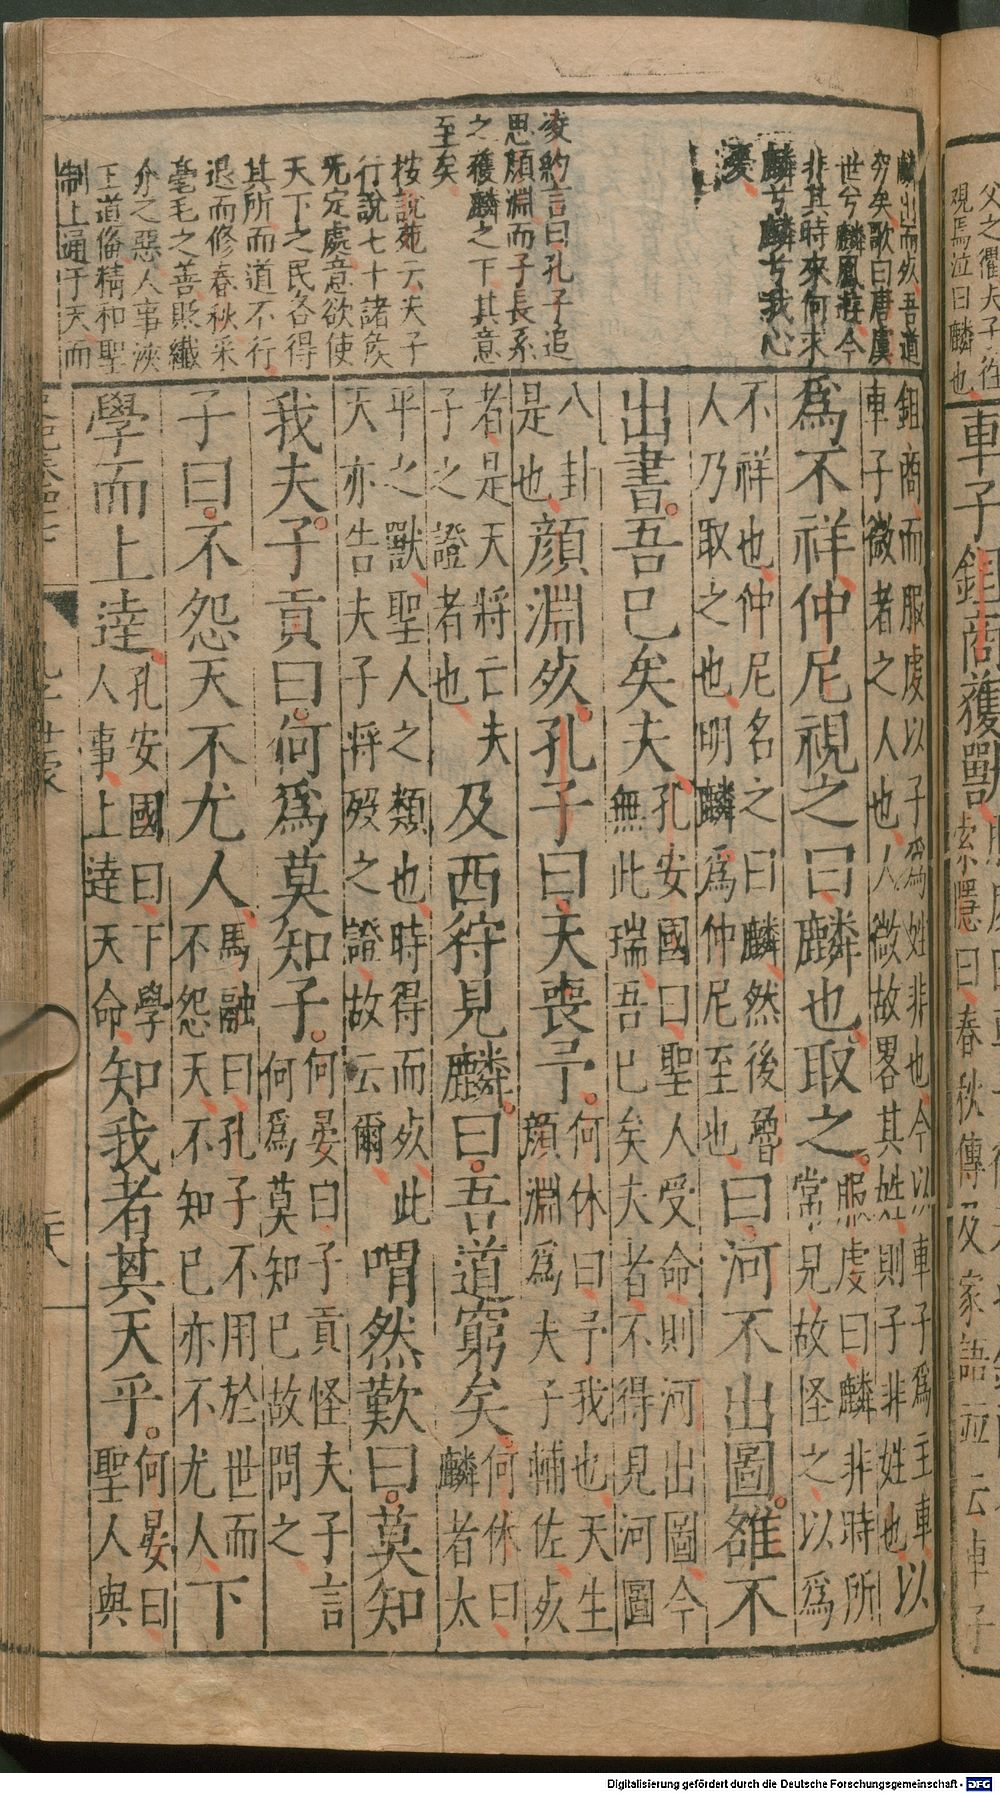 父之衢夫子往
觀焉泣曰麟也
車子鉏商獲獸
索隱曰春秋傳及家語並云車子
麟出而死吾道
窮矣歌曰唐虞
世兮麟鳳遊今
非其時來何求
麟兮麟兮我心
憂
凌約言曰孔子追
思顏淵而子長系
之獲麟之下其意
至矣
按說苑云夫子
行說七十諸侯
无定處意欲使
天下之民各得
其所而道不行
退而修春秋采
毫毛之善貶纖
介之惡人事浹
王道備精和聖
制上通于天而
鉏商而服虔以子爲姓非也今以車子爲主車
車子微者之人也人微故畧其姓則子非姓也以
爲不祥仲尼視之曰麟也取之服虔曰麟非時所
常見故怪之以爲
不祥也仲尼名之曰麟然後魯
人乃取之也明麟爲仲尼至也曰河不出圖雒不
出書吾已矣夫孔安國曰聖人受命則河出圖今
無此瑞吾已矣夫者不得見河圖
八卦
是也顏淵死孔子曰天喪予何休曰予我也天生
顏淵爲夫子輔佐死
者是天將亡夫
子之證者也及西狩見麟曰吾道窮矣何休曰
麟者太
平之獸聖人之類也時得而死此
天亦告夫子將歿之證故云爾喟然歎曰莫知
我夫子貢曰何爲莫知子何晏曰子貢怪夫子言
何爲莫知已故問之
子曰不怨天不尤人馬融曰孔子不用於世而
不怨天不知已亦不尤人下
學而上達孔安國曰下學
人事上達天命知我者其天乎何晏曰
聖人與
Digitalisierung gefördert durch die Deutsche Forschungsgemeinschaft - DFG